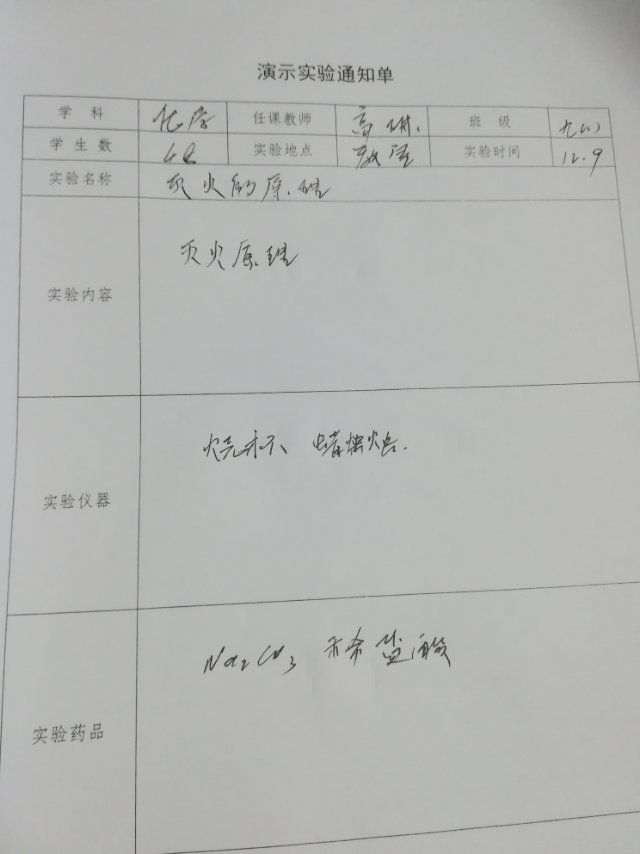 演示实验通知单
学 科 化学 任课教师 高 班 级
学 生 数 实验地点 教室 实验时间 12.9
实验名称 灭火的原理
实验内容 灭火原理
实验仪器 烧杯、蜡烛
实验药品 Na2CO3 稀盐酸